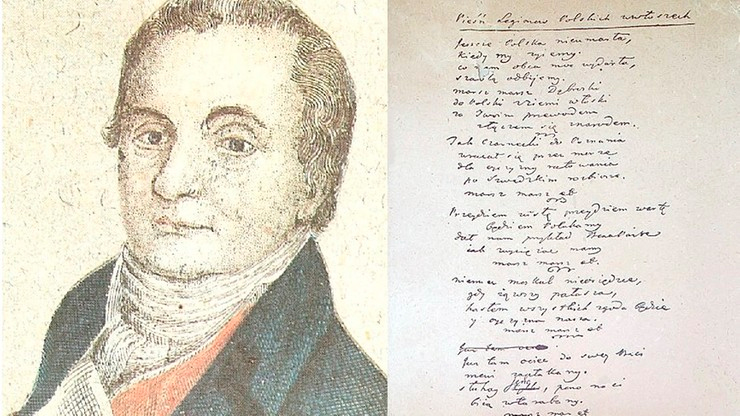 Pieśń Legionów Polskich we Włoszech
Jeszcze Polska nie umarła,
kiedy my żyjemy.
co nam obca moc wydarła,
szablą odbijemy.
marsz marsz Dąbrski
do Polski z ziemi włoski
za Twoim przewodem
złączem się z narodem.
Jak Czarnecki do Poznania
wracał się przez morze
dla ojczyzny ratowania
po szwedzkim rozbiorze.
marsz marsz et
Przejdziem Wisłę przejdziem Wartę
będziem Polakamy
dał nam przykład Bonaparte
jak zwyciężać mamy
marsz marsz et
niemiec moskal nieosiędzie,
gdy jąwszy pałasza,
hasłem wszystkich zgoda będzie
y ojczyzna nasza.
marsz marsz et
Już tam
Już tam ociec do swej Basi
mówi zapłakany.
słuchay, pono nasi
biią w tarabany.
marsz marsz et